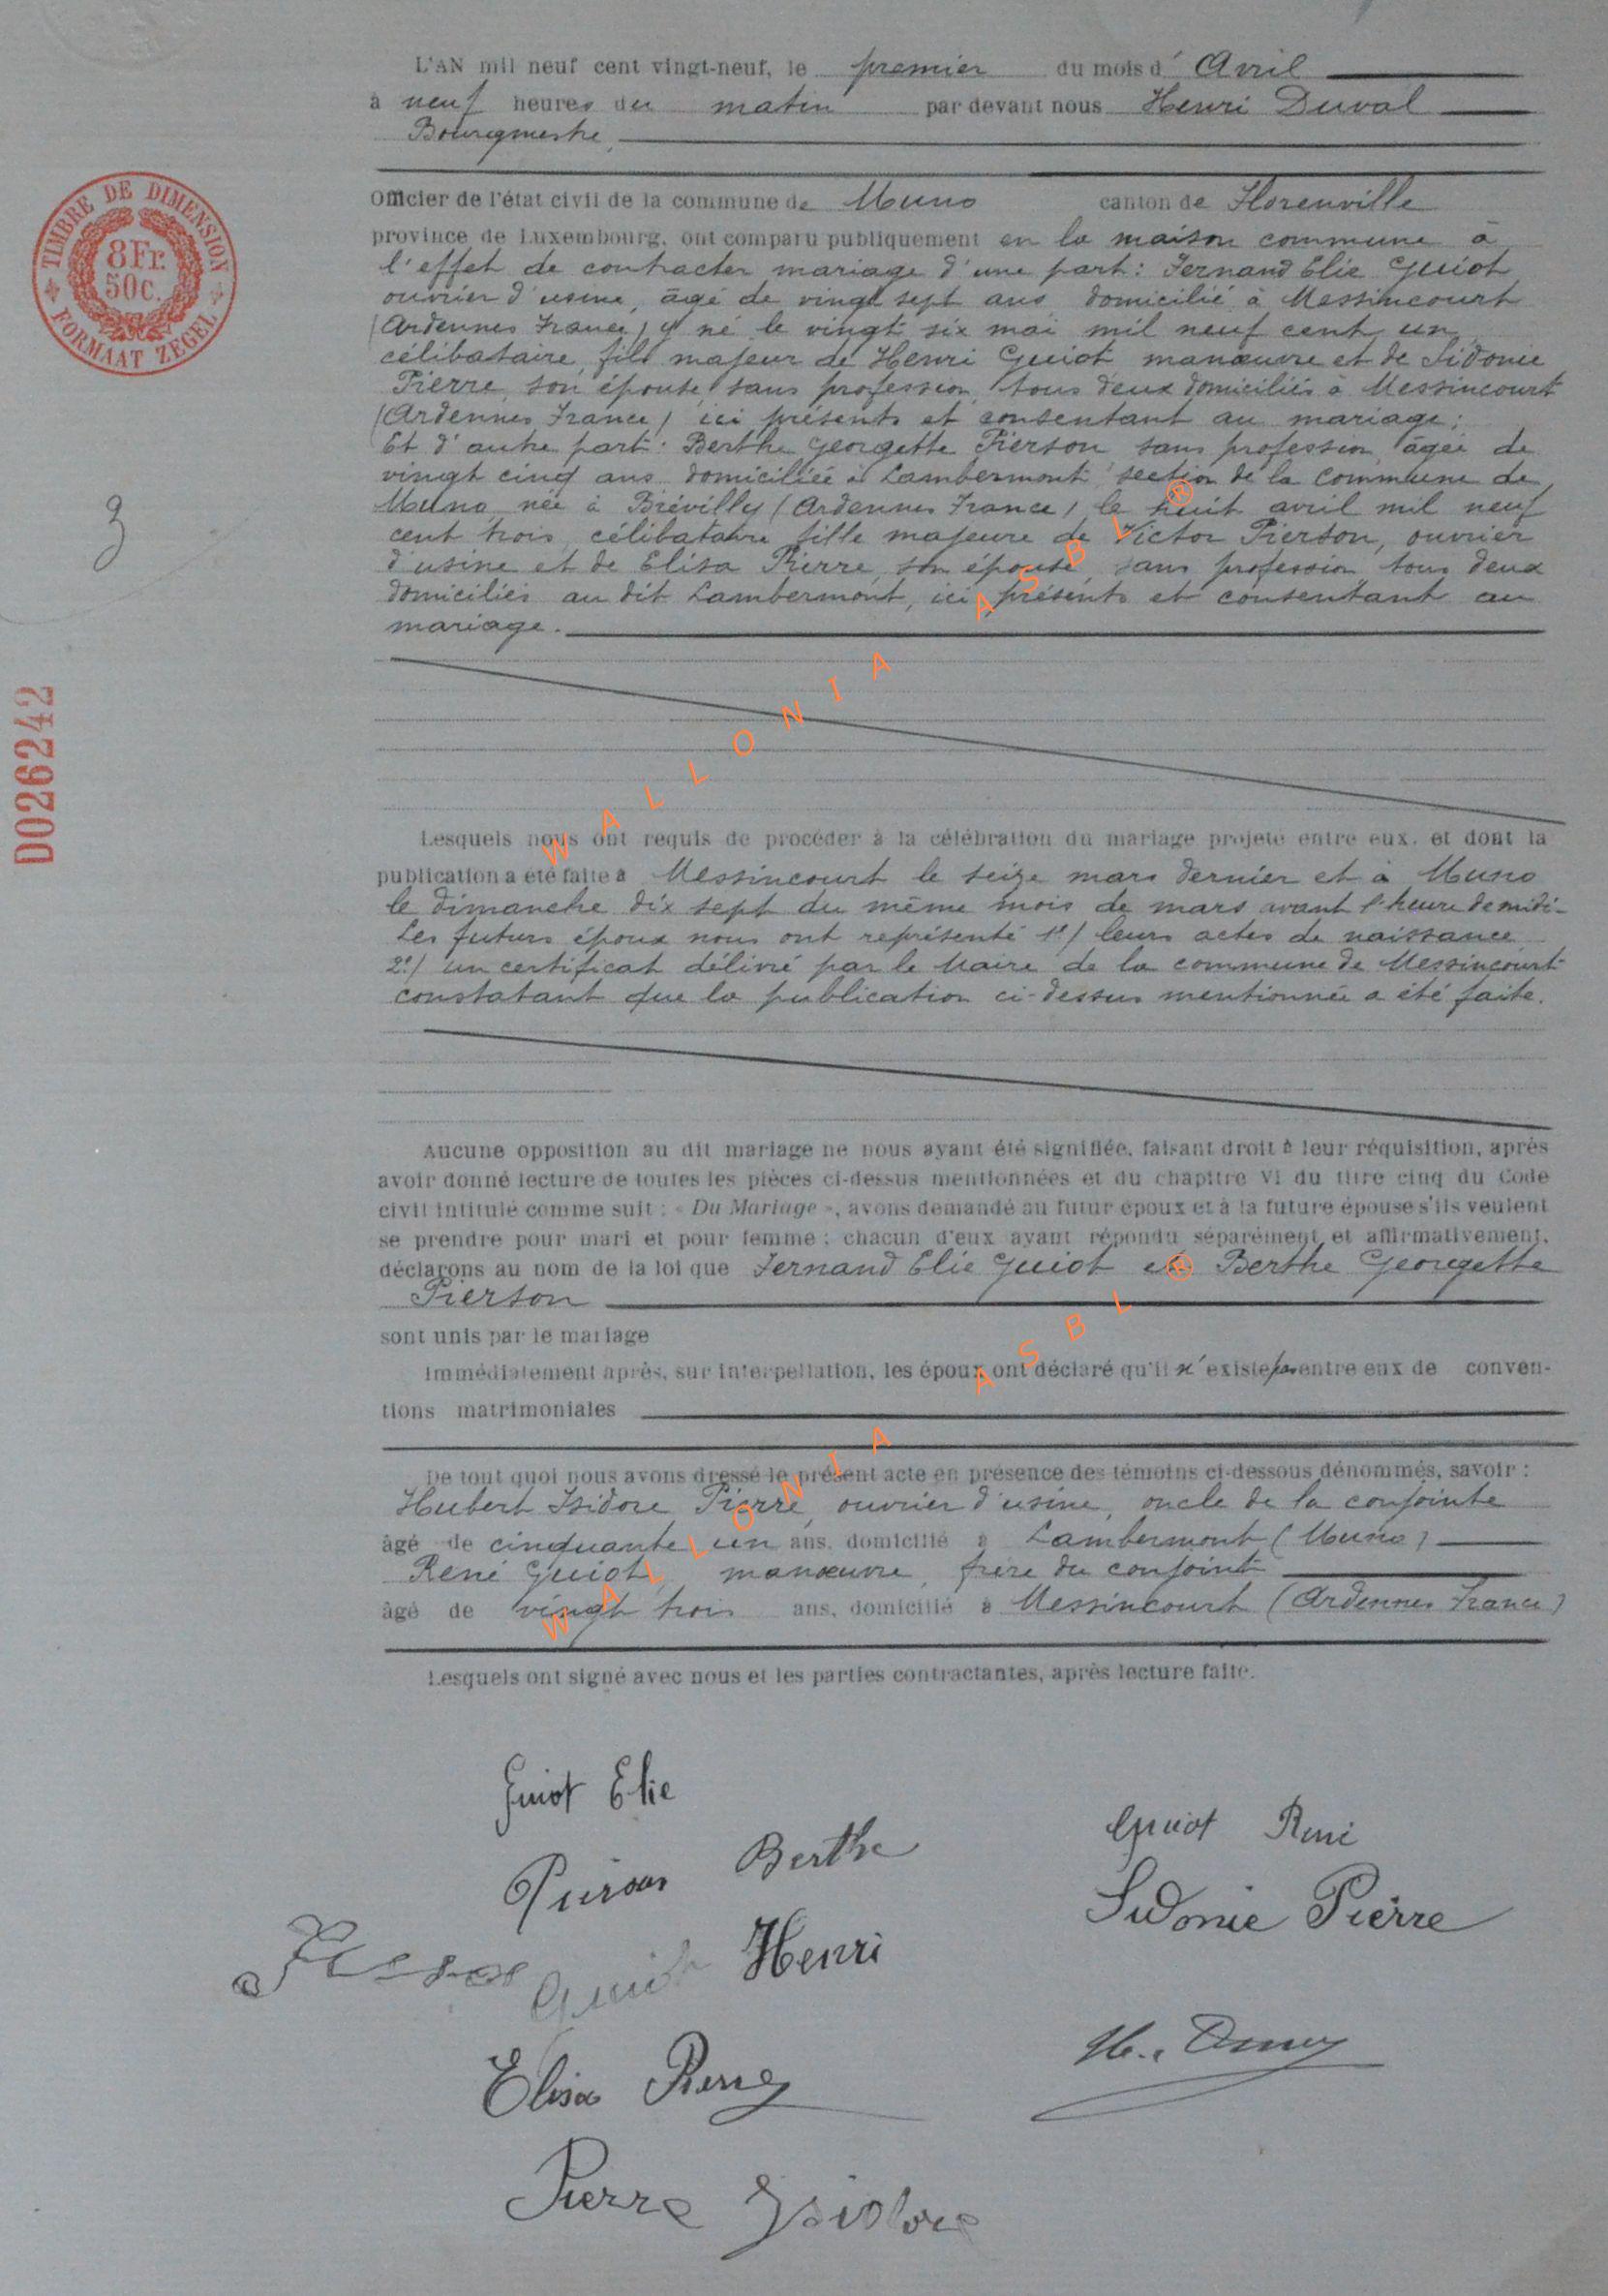 L'AN mil neuf cent vingt-neuf, le premier du mois d' Avril
à neuf heures du matin par devant nous Henri Duval
Bourgmestre,
Officier de l'état civil de la commune de Muno canton de Florenville
province de Luxembourg, ont comparu publiquement en la maison commune à
l'effet de contracter mariage d'une part : Fernand Elie Guiot
ouvrier d'usine, âgé de vingt sept ans domicilié à Messincourt
(Ardennes France) y né le vingt six mai mil neuf cent un
célibataire, fils majeur de Henri Guiot manœuvre et de Sidonie
Pierre, son épouse, sans profession, tous deux domiciliés à Messincourt
(Ardennes France) ici présents et consentant au mariage ;
Et d'autre part : Berthe Georgette Pierson sans profession, âgée de
vingt cinq ans domiciliée à Lambermont section de la commune de
Muno née à Brévilly (Ardennes France) le huit avril mil neuf
cent trois, célibataire fille majeure de Victor Pierson, ouvrier
d'usine et de Elisa Pierre, son épouse, sans profession, tous deux
domiciliés au dit Lambermont, ici présents et consentant au
mariage.
Lesquels nous ont requis de procéder à la célébration du mariage projeté entre eux, et dont la
publication a été faite à Messincourt le seize mars dernier et à Muno
le dimanche dix sept du même mois de mars avant l'heure de midi-
Les futurs époux nous ont représenté 1º/ leurs actes de naissance
2º/ un certificat délivré par le Maire de la commune de Messincourt
constatant que la publication ci-dessus mentionnée a été faite.
Aucune opposition au dit mariage ne nous ayant été signifiée, faisant droit à leur réquisition, après
avoir donné lecture de toutes les pièces ci-dessus mentionnées et du chapitre VI du titre cinq du Code
civil intitulé comme suit : « Du Mariage », avons demandé au futur époux et à la future épouse s'ils veulent
se prendre pour mari et pour femme ; chacun d'eux ayant répondu séparément et affirmativement,
déclarons au nom de la loi que Fernand Elie Guiot et Berthe Georgette
Pierson
sont unis par le mariage
Immédiatement après, sur interpellation, les époux ont déclaré qu'il n'existe pas entre eux de conven-
tions matrimoniales
De tout quoi nous avons dressé le présent acte en présence des témoins ci-dessous dénommés, savoir :
Hubert Isidore Pierre, ouvrier d'usine, oncle de la conjointe
âgé de cinquante un ans, domicilié à Lambermont (Muno)
René Guiot, manœuvre, frère du conjoint
âgé de vingt trois ans, domicilié à Messincourt (Ardennes France)
Lesquels ont signé avec nous et les parties contractantes, après lecture faite.
Guiot Elie
Guiot René
Pierson Berthe
Sidonie Pierre
Guiot Henri
Elisa Pierre
Pierre Isidore
TIMBRE DE DIMENSION
8 Fr.
50 c.
FORMAAT ZEGEL
3
D026242
WALLONIA ASBL ®
WALLONIA ASBL ®